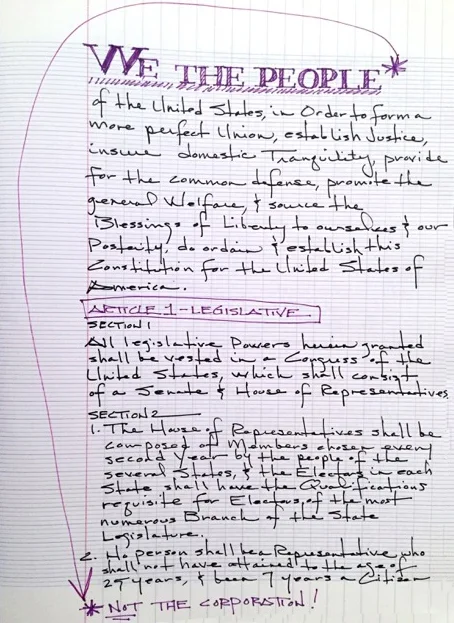 WE THE PEOPLE*
of the United States, in Order to form a
more perfect Union, establish Justice,
insure domestic Tranquility, provide
for the common defense, promote the
general Welfare, & source the
Blessings of Liberty to ourselves & our
Posterity, do ordain & establish this
Constitution for the United States of
America.
ARTICLE 1 - LEGISLATIVE
SECTION 1
All legislative Powers herein granted
shall be vested in a Congress of the
United States, which shall consist
of a Senate & House of Representatives
SECTION 2
1. The House of Representatives shall be
composed of Members chosen every
second Year by the people of the
several States, & the Electors in each
State shall have the Qualifications
requisite for Electors of the most
numerous Branch of the State
Legislature.
2. No person shall be a Representative who
shall not have attained to the age of
25 years, & been 7 years a Citizen
* NOT THE CORPORATION!